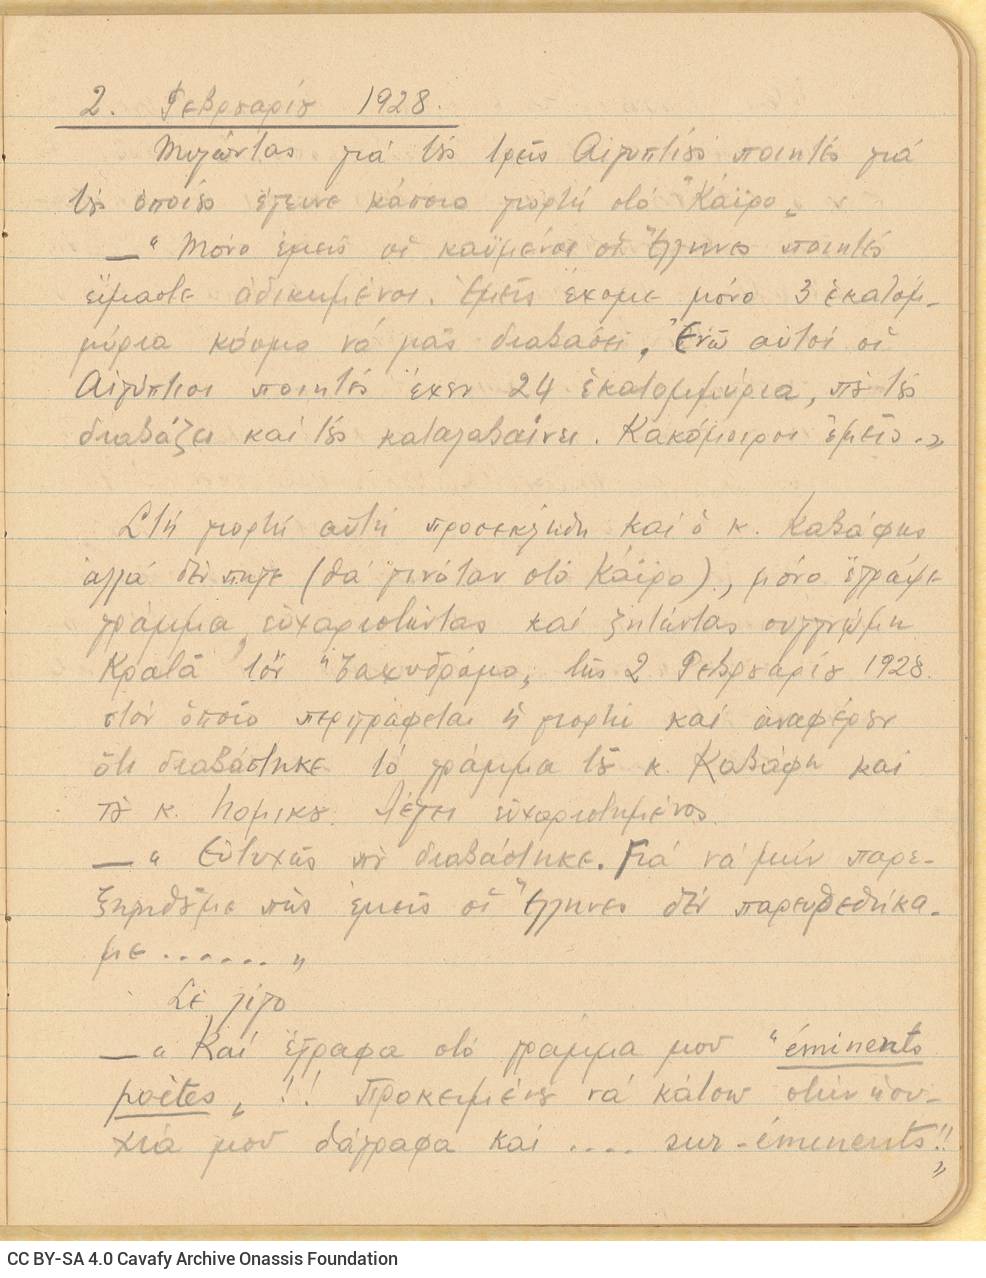 2. Φεβρουαρίου 1928.
Μιλῶντας γιά τούς τρεῖς Αἰγυπτίους ποιητές γιά
τούς ὁποίους ἔγεινε κάποια γιορτή στό "Κάϊρο„
— "Μόνο ἐμεῖς οἱ καϋμένοι οἱ Ἕλληνες ποιητές
εἴμαστε ἀδικημένοι. Ἐμεῖς ἔχομε μόνο 3 ἑκατομ-
μύρια κόσμο νά μᾶς διαβάσει, Ἐνῶ αὐτοί οἱ
Αἰγύπτιοι ποιητές ἔχουν 24 ἑκατομμύρια, ποὺ τούς
διαβάζει καί τούς καταλαβαίνει. Κακόμοιροι ἐμεῖς.„
Στή γιορτή αὐτή προσεκλήθη καί ὁ κ. Καβάφης
ἀλλά δέν πῆγε (θά γινόταν στό Κάϊρο), μόνο ἔγραψε
γράμμα, εὐχαριστώντας καί ζητώντας συγγνώμη
Κρατᾶ τόν "Ταχυδρόμο„ τῆς 2 Φεβρουαρίου 1928.
στόν ὁποῖο περιγράφεται ἡ γιορτή καί ἀναφέρουν
ὅτι διαβάστηκε τό γράμμα τοῦ κ. Καβάφη καί
τοῦ κ. Νομικοῦ. Λέγει εὐχαριστημένος.
— "Εὐτυχῶς ποὺ διαβάστηκε. Γιά νά μήν παρε-
ξηγηθοῦμε πώς ἐμεῖς οἱ Ἕλληνες δέν παρευρεθήκα-
με ......."
Σέ λίγο
— "Καί ἔγραφα στό γράμμα μου "éminents
poètes„ !! Προκειμένου νά κάτσω στήν ἡσυ-
χιά μου θάγραφα καί .... sur-éminents!!
"